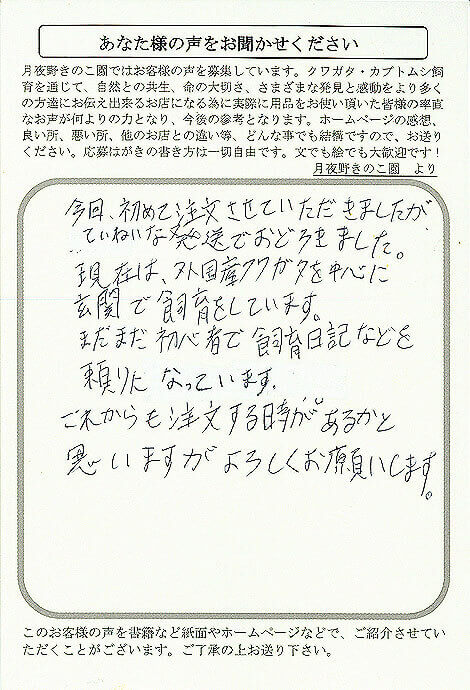 あなた様の声をお聞かせください
月夜野きのこ園ではお客様の声を募集しています。クワガタ・カブトムシ飼
育を通じて、自然との共生、命の大切さ、さまざまな発見と感動をより多く
の方達にお伝え出来るお店になる為に実際に用品をお使い頂いた皆様の率直
なお声が何よりの力となり、今後の参考となります。ホームページの感想、
良い所、悪い所、他のお店との違い等、どんな事でも結構ですので、お送り
ください。応募はがきの書き方は一切自由です。文でも絵でも大歓迎です！
月夜野きのこ園　より
今回、初めて注文させていただきましたが
ていねいな発送でおどろきました。
現在は、外国産クワガタを中心に
玄関で飼育をしています。
まだまだ初心者で飼育日記などを
頼りになっています。
これからも注文する時があるかと
思いますがよろしくお願いします。
このお客様の声を書籍など紙面やホームページなどで、ご紹介させてい
ただくことがございます。ご了承の上お送り下さい。